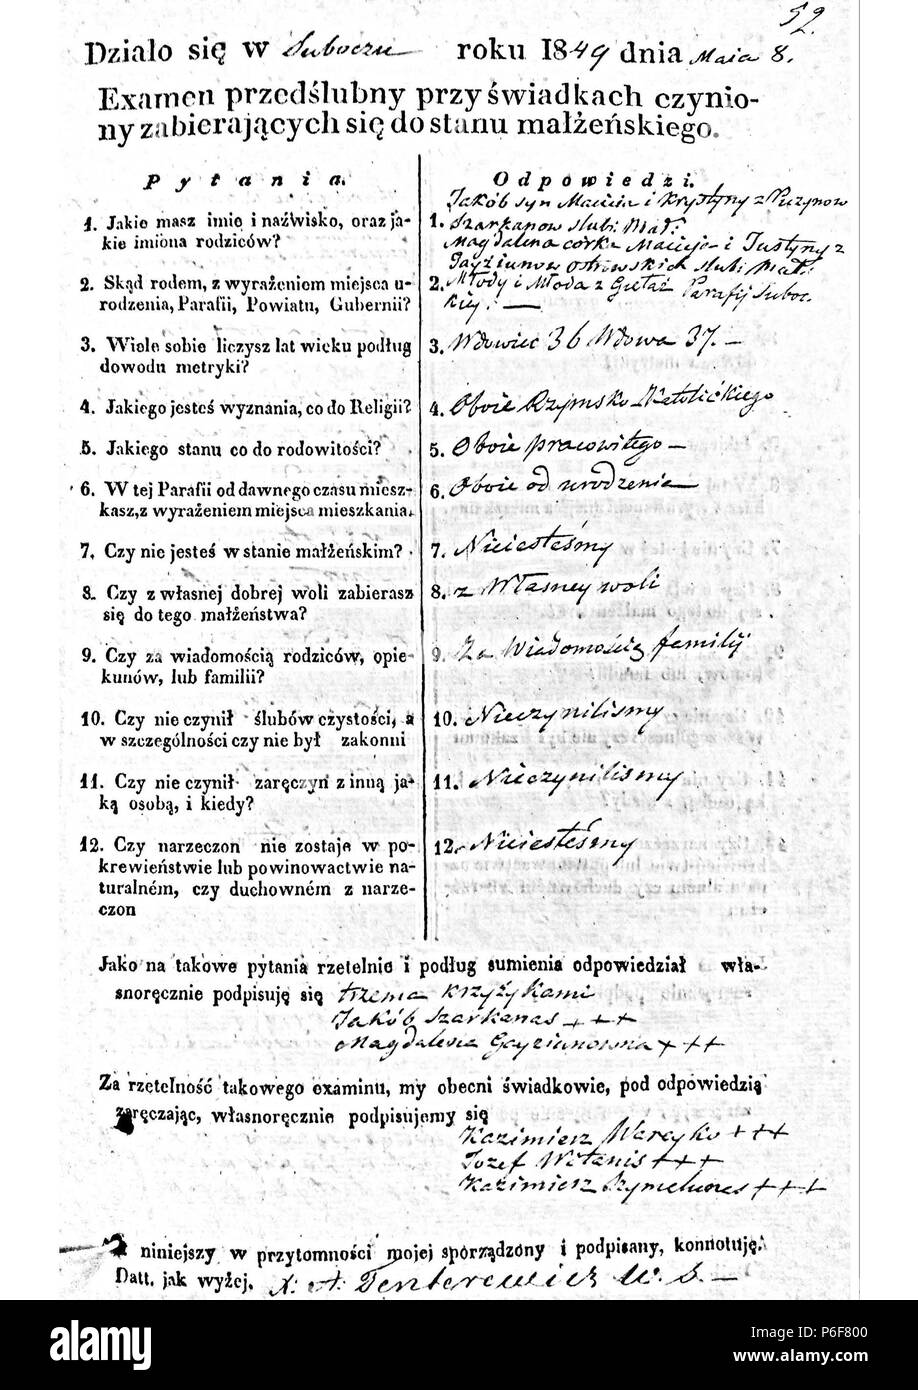 52.
Działo się w Suboczu roku 1849 dnia Maia 8.
Examen przedślubny przy świadkach czynio-
ny zabierających się do stanu małżeńskiego.
Pytania.
1. Jakie masz imie i naźwisko, oraz ja-
kie imiona rodziców?
2. Skąd rodem, z wyrażeniem miejsca u-
rodzenia, Parafii, Powiatu, Gubernii?
3. Wiele sobie liczysz lat wieku podług
dowodu metryki?
4. Jakiego jesteś wyznania, co do Religii?
5. Jakiego stanu co do rodowitości?
6. W tej Parafii od dawnego czasu miesz-
kasz, z wyrażeniem miejsca mieszkania.
7. Czy nie jesteś w stanie małżeńskim?
8. Czy z własnej dobrej woli zabierasz
się do tego małżeństwa?
9. Czy za wiadomością rodziców, opie-
kunów, lub familii?
10. Czy nie czynił ślubów czystości, a
w szczególności czy nie był zakonni
11. Czy nie czynił zaręczyn z inną ja-
ką osobą, i kiedy?
12. Czy narzeczon nie zostaje w po-
krewieństwie lub powinowactwie na-
turalném, czy duchowném z narze-
czon
Odpowiedzi.
Jakób syn Macieia i Krystyny z Puzynow
1. Szarkanow slubi: Mał:
Magdalena córka Macieja i Justyny z
Gayziunow Ostrowskich slubi: Mał:
2. Młody i Młoda z Parafij Suboc.
kiey: —
3. Wdowiec 36 Wdowa 37. —
4. Oboie Rzymsko-Katolickiego
5. Oboie pracowitego —
6. Oboie od urodzenia
7. Nieiesteśmy
8. z Własney woli
9. Za Wiadomością familij
10. Nieczynilismy
11. Nieczynilismy
12. Nieiesteśmy
Jako na takowe pytania rzetelnie i podług sumienia odpowiedział wła-
snoręcznie podpisuję się trzema krzyżykami
Jakób Szarkanas +++
Magdalena Gayziunowna +++
Za rzetelność takowego examinu, my obecni świadkowie, pod odpowiedzią
zaręczając, własnoręcznie podpisujemy się
Kazimierz Wareyko +++
Jozef Witanis +++
Kazimierz Szymelunas +++
niniejszy w przytomności mojej sporządzony i podpisany, konnotuję.
Datt. jak wyżej. X: A. W. S. —
alamy
Image ID: P6F800
www.alamy.com